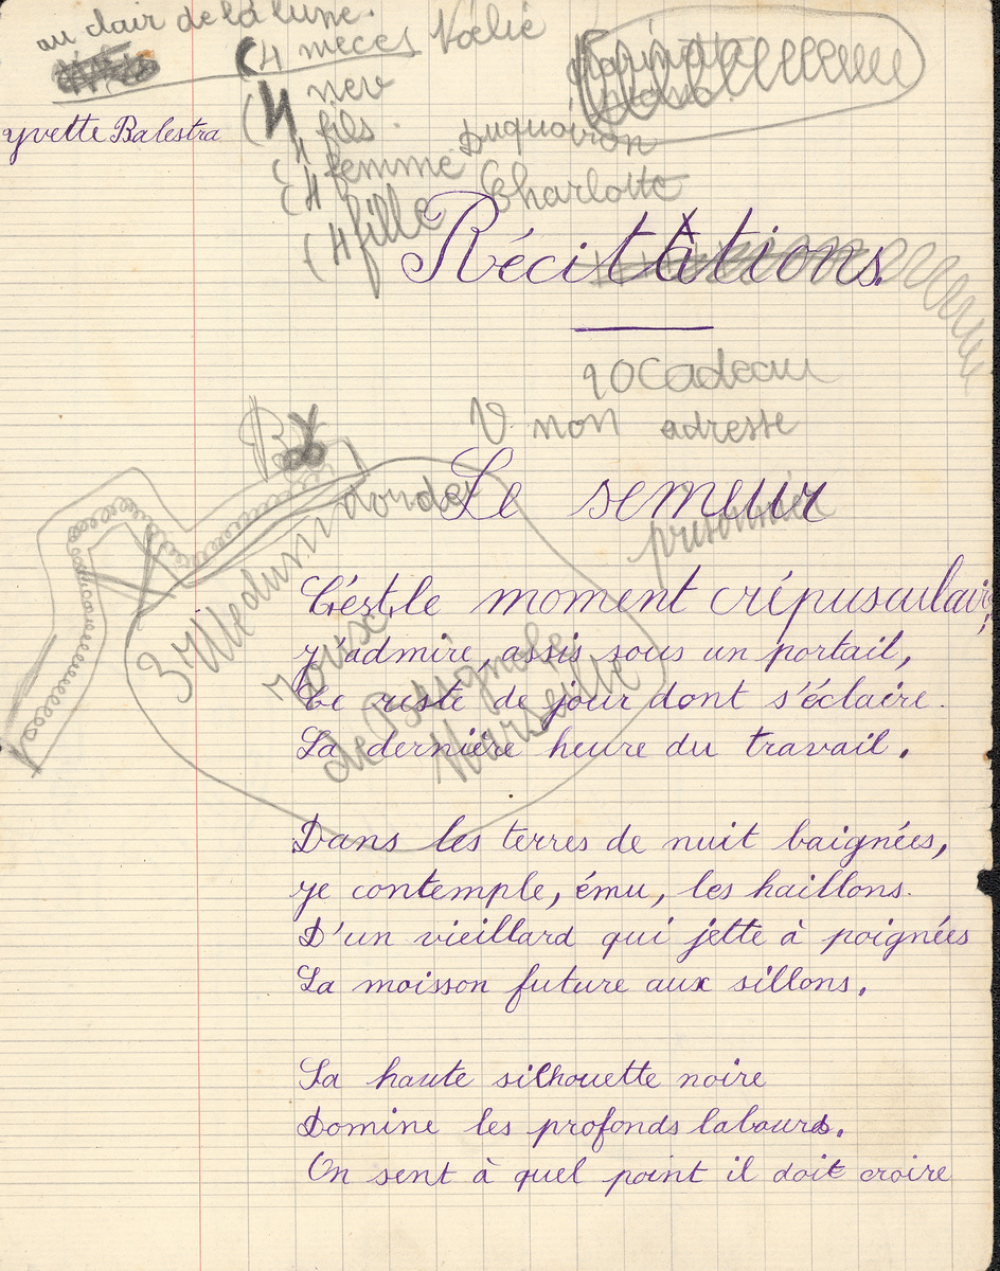 au clair de la lune.
4 nieces Noelie
4 nev
yvette Balestra
4 fils.
4 femme Duquairon
4 fille Charlotte
Récitations.
90 Cadeau
V. non adresse
Le semeur
prisonnier
3 rue
roux
de
Marseille
C'est le moment crépusculair
J'admire, assis sous un portail,
Ce reste de jour dont s'éclaire.
La dernière heure du travail.
Dans les terres de nuit baignées,
Je contemple, ému, les haillons.
D'un vieillard qui jette à poignées
La moisson future aux sillons.
La haute silhouette noire
Domine les profonds labours.
On sent à quel point il doit croire